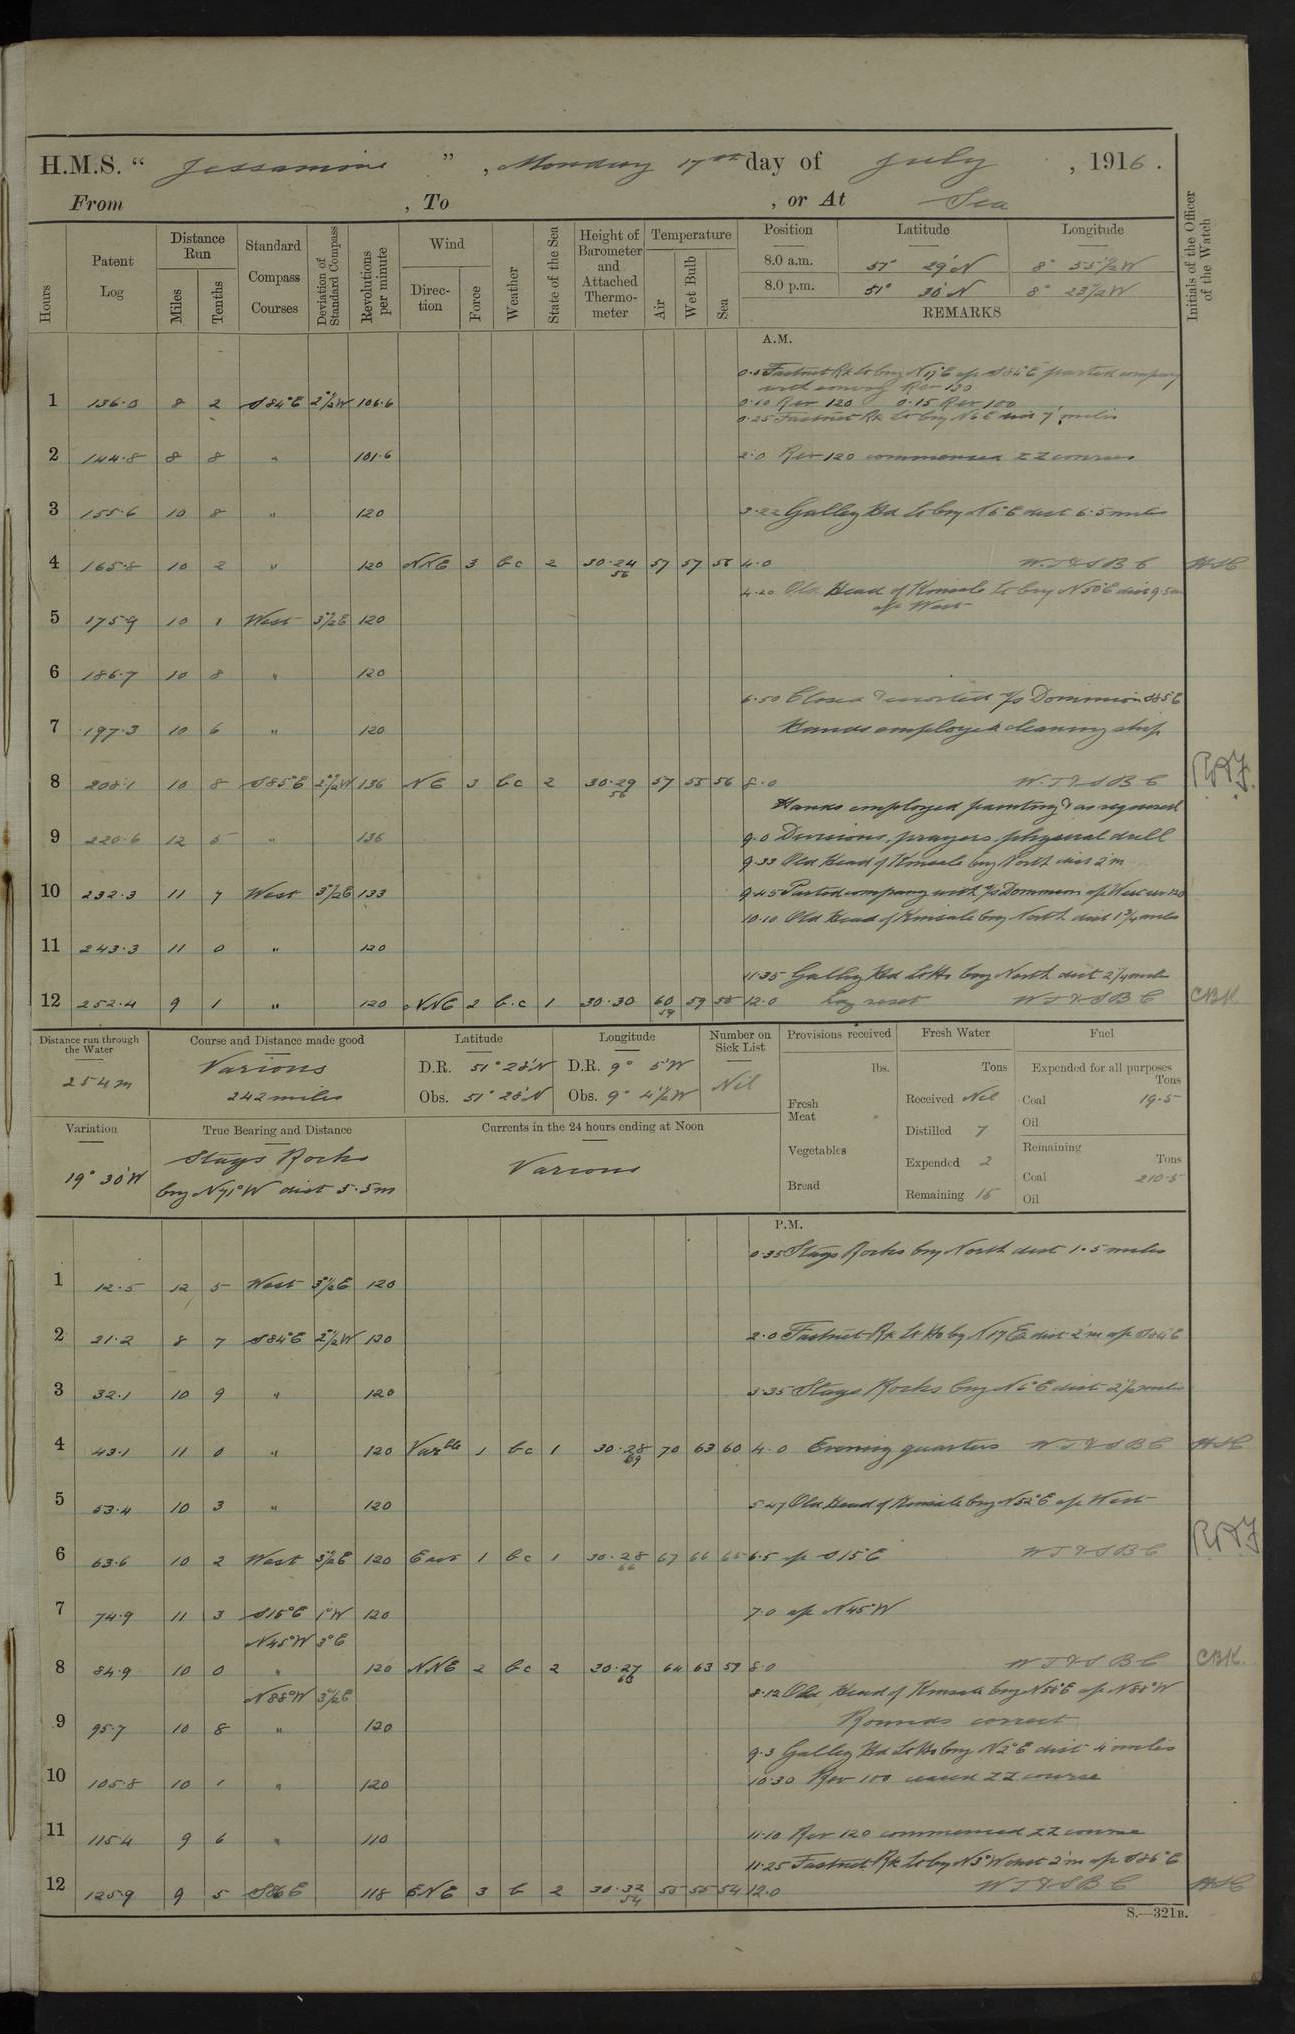 H.M.S. “ Jessamine ” , Monday 17th day of July , 1916 .
From , To , or At Sea
Hours
Patent Log
Distance Run
Miles
Tenths
Standard Compass Courses
Deviation of Standard Compass
Revolutions per minute
Wind
Direction
Force
Weather
State of the Sea
Height of Barometer and Attached Thermometer
Temperature
Air
Wet Bulb
Sea
Position Latitude Longitude
8.0 a.m. 51° 29'N 8° 55½'W
8.0 p.m. 51° 30'N 8° 23½'W
REMARKS
Initials of the Officer of the Watch
A.M.
0.5 Fastnet Rk Lt brg N17°E a/c S84°E parted company
with convoy Rev 130
1 136.0 8 2 S84°E 2½W 106.6 0.10 Rev 120 0.15 Rev 100
0.25 Fastnet Rk Lt brg N6E dist 7 miles
2 144.8 8 8 " 101.6 2.0 Rev 120 commenced ZZ courses
3 155.6 10 8 " 120 3.22 Galley Hd Lt brg N6°E dist 6.5 miles
4 165.8 10 2 " 120 NNE 3 bc 2 30.24 56 57 57 55 4.0 W.T.&S B C HSC
4.20 Old Head of Kinsale Lt brg N50°E dist 9.5m
a/c West
5 175.9 10 1 West 3½E 120
6 186.7 10 8 " 120
6.50 Closed & escorted s/s Dominion S85E
7 197.3 10 6 " 120 Hands employed cleaning ship
8 208.1 10 8 S85°E 2½W 136 NE 3 bc 2 30.29 56 57 55 56 8.0 W.T.&S B C
Hands employed painting & as requisred
9 220.6 12 5 " 136 9.0 Divisions, prayers, physical drill
9.33 Old Head of Kinsale brg North dist 2'm
10 232.3 11 7 West 3½E 133 9.45 Parted company with s/s Dominion a/c West rev 120
10.10 Old Head of Kinsale brg North dist 1¾ miles
11 243.3 11 0 " 120
11.35 Galley Hd Lt Ho brg North dist 2¼ miles
12 252.4 9 1 " 120 NNE 2 b.c 1 30.30 59 60 59 58 12.0 Log reset W T & S B C CBK
Distance run through the Water
254m
Course and Distance made good
Various
242 miles
Latitude
D.R. 51° 28'N
Obs. 51° 28'N
Longitude
D.R. 9° 5'W
Obs. 9° 4½'W
Number on Sick List
Nil
Provisions received
lbs.
Fresh Meat
Vegetables
Bread
Fresh Water
Tons
Received Nil
Distilled 7
Expended 2
Remaining 15
Fuel
Expended for all purposes
Tons
Coal 19.5
Oil
Remaining
Tons
Coal 210.5
Oil
Variation
19° 30'W
True Bearing and Distance
Stags Rocks
brg N71°W dist 5.5m
Currents in the 24 hours ending at Noon
Various
P.M.
0.35 Stags Rocks brg North dist 1.5 miles
1 12.5 12 5 West 3½E 120
2 21.2 8 7 S84°E 2½W 120 2.0 Fastnet Rk Lt Ho brg N17E dist 2'm a/c S84°E
3 32.1 10 9 " 120 3.35 Stags Rocks brg N6°E dist 2½ miles
4 43.1 11 0 " 120 Varble 1 bc 1 30.28 69 70 63 60 4.0 Evening quarters W T & S B C HSC
5 53.4 10 3 " 120 5.47 Old Head of Kinsale brg N52°E a/c West
6 63.6 10 2 West 3½E 120 East 1 bc 1 30.28 66 67 66 65 6.5 a/c S15°E W T & S B C
7 74.9 11 3 S15°E 1°W 120 7.0 a/c N45°W
N45°W 3°E
8 84.9 10 0 " 120 NNE 2 bc 2 30.27 63 64 63 59 8.0 W T & S B C CBK.
N88°W 3½E 8.12 Old Head of Kinsale brg N58°E a/c N88°W
9 95.7 10 8 " 120 Rounds correct
9.3 Galley Hd Lt Ho brg N2°E dist 4 miles
10 105.8 10 1 " 120 10.30 Rev 100 ceased ZZ course
11 115.4 9 6 " 110 11.10 Rev 120 commenced ZZ course
11.25 Fastnet Rk Lt brg N3°W dist 2'm a/c S86°E
12 125.9 9 5 S86E 118 ENE 3 b 2 30.32 54 55 55 54 12.0 W T & S B C HSC
S.—321B.